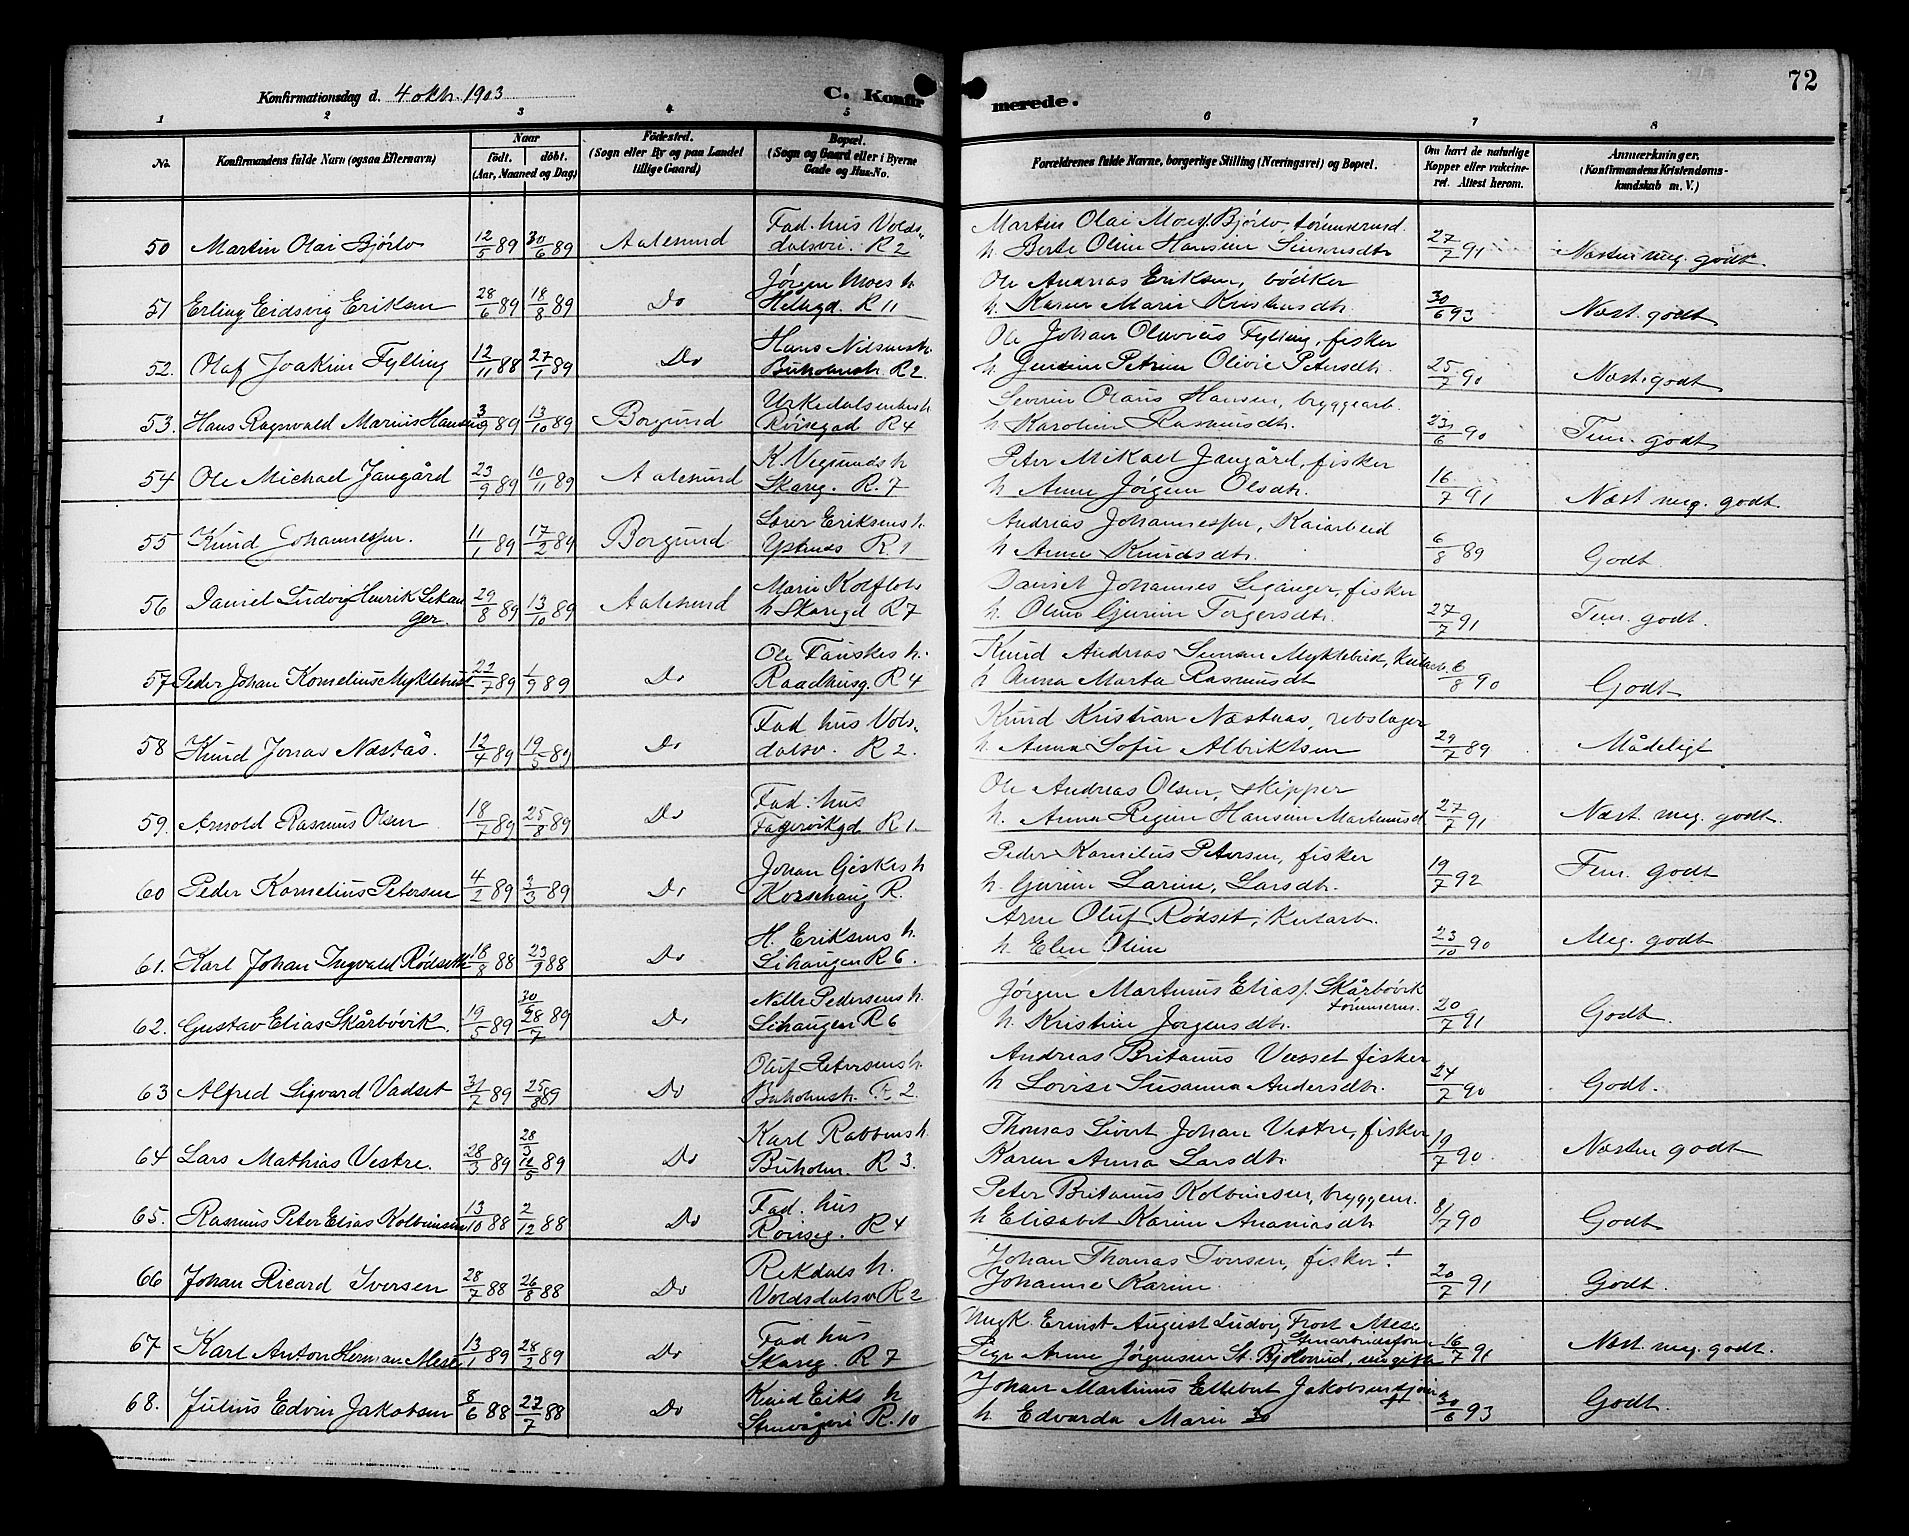 72
Konfirmationsdag d. 4 okb. 1903
C. Konfirmerede.
1 2 3 4 5 6 7 8
No. Konfirmandens fulde Navn (ogsaa Efternavn) Naar født. døbt. (Aar, Maaned og Dag) Fødested. (Sogn eller By og paa Landet tillige Gaard) Bopæl. (Sogn og Gaard eller i Byerne Gade og Hus-No. Forældrenes fulde Navne, borgerlige Stilling (Næringsvei) og Bopæl. Om havt de naturlige Kopper eller vaccineret. Attest herom. Anmærkninger. (Konfirmandens Kristendomskundskab m. V.)
50 Martin Olai Bjørlo 12/5 89 30/6 89 Aalesund Fad. hus Voldsdalsvei. R 2 Martin Olai Bjørlo, tømmermd. h. Berte Oline Hansen 27/7 91 Næsten meg. godt.
51 Erling Eidsvig Eriksen 28/6 89 18/8 89 Do Jørgen Moes h R 11 Ole Andreas Eriksen, bødker h. Karen Marie Kristensdtr. 30/6 93 Næst. godt
52. Olaf Joakim Fylling 12/11 88 27/1 89 Do Hans Nilsens h. Buholmstr. R 2. Ole Johan Olavius Fylling, fisker h. Petrine Olivie Petersdtr. 25/7 90 Næst. godt
53. Hans Ragnvald Marius Hansen 3/9 89 13/10 89 Borgund Røisegad R 4 Severin Olaus Hansen, bryggearb. h Karoline Rasmusdtr. 23/6 90 Tem. godt
54 Ole Michael Jangård 23/9 89 10/11 89 Aalesund K. Vegsunds h Skareg. R. 7 Peter Mikael Jangård, fisker h Anne Jørgine Olsdtr. 16/7 91 Næst meg. godt.
55 Knud Johannessen. 11/1 89 17/2 89 Borgund Lærer Eriksens h. R 1 Andrias Johannessen, Kaiarbeid h Anne Knudsdtr. 6/8 89 Godt.
56 Daniel Ludvig Henrik Lekanger. 29/8 89 13/10 89 Aalesund Marie h Skaregd R 7 Daniel Johannes Leganger, fisker h. Oline Gurine Torgersdtr. 27/7 91 Tem. godt.
57 Peder Johan Kornelius Myklebust 22/7 89 1/9 89 Do Ole Fauskes h. Raadhusg. R 4 Knud Andreas Myklebust, h Anna Marta Rasmusdt 6/8 90 Godt
58 Knud Jonas Næstås. 12/4 89 19/5 89 Do Fad. hus Volsdalsv. R 2. Knud Kristian Næstaas, rebslager h. Anna Sofie Albriktsen 29/7 89 Mådeligt
59. Arnold Rasmus Olsen 18/7 89 25/8 89 Do Fad. hus Fagervikgd R 1. Ole Andreas Olsen, skipper h. Anna Regine Hansen Martinusd 27/7 91 Næst. meg. godt.
60 Peder Kornelius Petersen 4/2 89 3/3 89 Do Johan Giskes h Korsehaug R. Peder Kornelius Petersen, fisker h. Gurine Larine, Larsdtr. 19/7 92 Tem. godt
61. Karl Johan Ingvald Rødseth 18/8 88 23/9 88 Do H. Eriksens h. Lihaugen R 6. Arne Oluf Rødset, Kularb. h. Elen Oline 23/10 90 Meg. godt
62. Gustav Elias Skårbøvik. 19/5 89 30/5 28/7 89 Do Nille Pedersens h. Lihaugen R 6 Jørgen Martinus Elias. Skårbøvik tømmerm. h. Kristine Jørgensdtr. 20/7 91 Godt.
63 Alfred Sigvard Vadset 31/7 89 25/8 89 Do Oluf Petersens h Buholmstr. R 2. Andreas Britanus Vasset fisker h Lovise Susanna Andersdtr. 24/7 90 Godt.
64 Lars Mathias Vestre. 28/3 89 28/3 12/5 89 Do Karl Rabbens h. Buholm. R 3. Thomas Sivert Johan Vestre, fisker Karen Anna Larsdtr. 19/7 90. Næsten godt
65. Rasmus Peter Elias Kolbeinsen 13/10 88 2/12 88 Do Fad. hus Røiseg. R 4 Peter Britanus Kolbeinsen, bryggem. h Elisabet Karine Ananiasdtr 8/7 90 Godt
66 Johan Ricard Iversen 28/7 88 26/8 88 Do Rekdals h. Voldsdalsv R 2 Johan Thomas Iversen, fisker + Johanne Karine 20/7 91 Godt.
67 Karl Anton Herman Mese 13/1 89 28/2 89 Do Fad. hus Skareg. R 7 Ungk. Ernst August Ludvig Frost Mese Pige Anne Jørgensen St. ugift 16/7 91 Næst. meg. godt.
68. Julius Edvin Jakobsen 8/6 88 22/7 88 Do Knud Eiks h Stenvågen R. 10 Johan Martinus Ellebut Jakobsen h. Edvarda Marie 30/6 93 Godt.